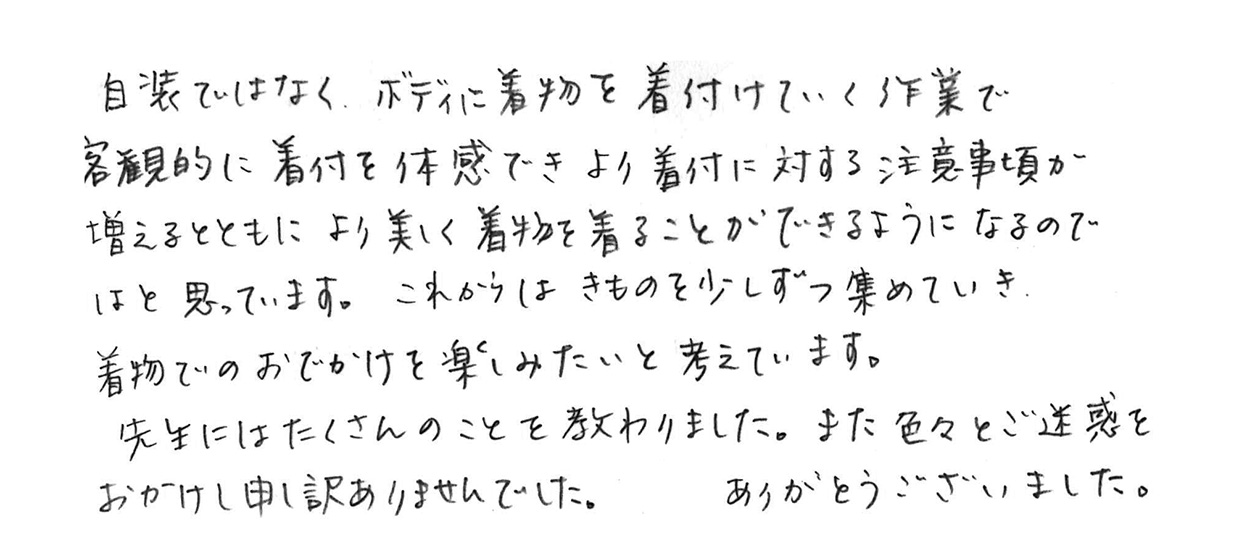 自装ではなく、ボディに着物を着付けていく作業で
客観的に着付を体感できより着付に対する注意事項が
増えるとともにより美しく着物を着ることができるようになるので
はと思っています。これからはきものを少しずつ集めていき、
着物でのおでかけを楽しみたいと考えています。
先生にはたくさんのことを教わりました。また色々とご迷惑を
おかけし申し訳ありませんでした。 ありがとうございました。